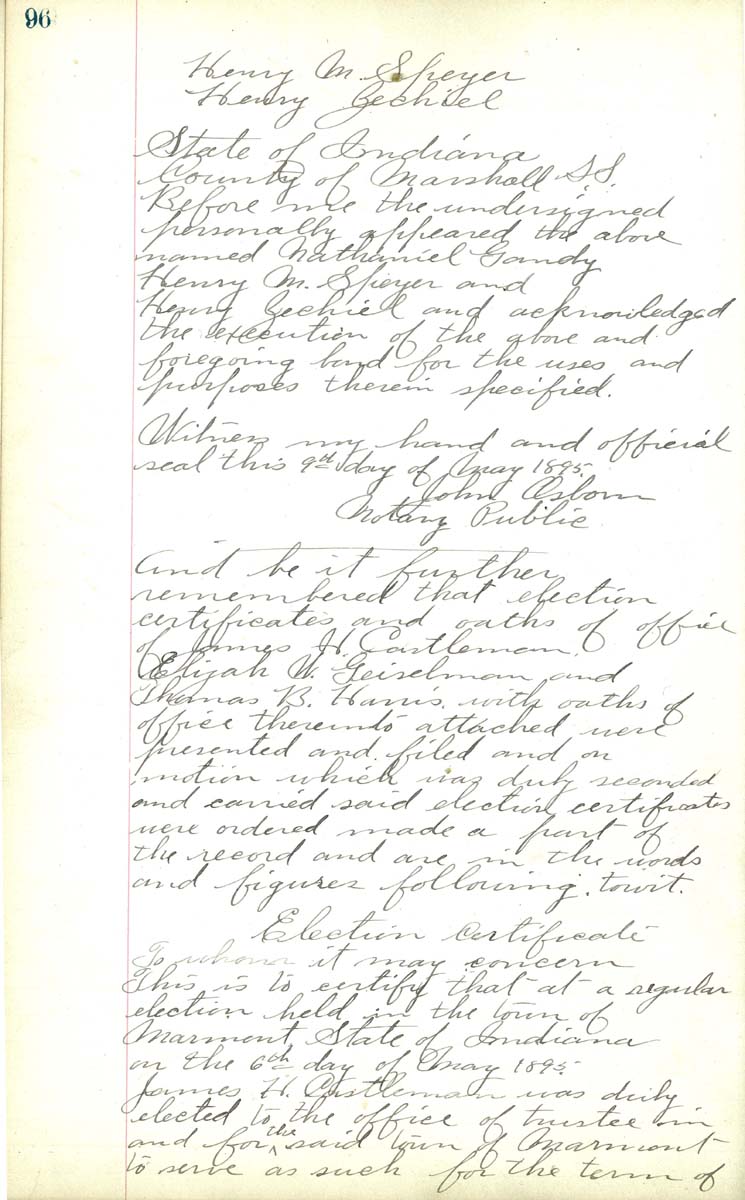 96
Henry M. Speyer
Henry Zechiel
State of Indiana
County of Marshall S.S.
Before me the undersigned
personally appeared the above
named Nathaniel Gandy
Henry M. Speyer and
Henry Zechiel and acknowledged
the execution of the above and
foregoing bond for the uses and
purposes therein specified.
Witness my hand and official
seal this 9th day of May 1895.
John Osborn
Notary Public
And be it further
remembered that election
certificates and oaths of office
of James H. Castleman,
Elijah W. Geiselman and
Thomas B. Harris with oaths of
office thereunto attached were
presented and filed and on
motion which was duly seconded
and carried said election certificates
were ordered made a part of
the record and are in the words
and figures following, towit.
Election Certificate
To whom it may concern
This is to certify that at a regular
election held in the town of
Marmont, State of Indiana
on the 6th day of May 1895.
James H. Castleman was duly
elected to the office of trustee in
and for the said town of Marmont
to serve as such for the term of